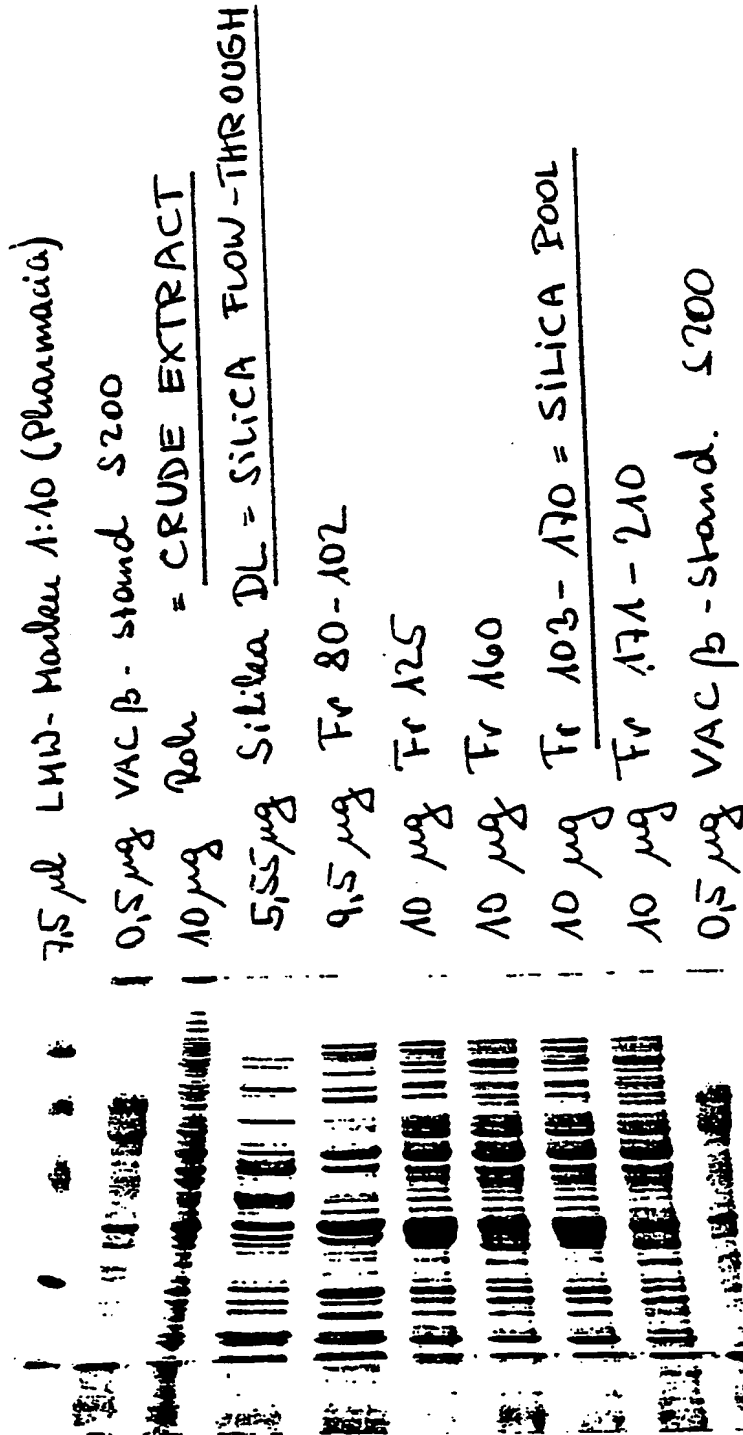 7,5 µl LMW-Marker 1:10 (Pharmacia)
0,5 µg VAC β - stand S200
10 µg Roh = CRUDE EXTRACT
5,55 µg Silika DL = SiLiCA FLOW-THROUGH
9,5 µg Fr 80-102
10 µg Fr 125
10 µg Fr 160
10 µg Fr 103-170 = SiLiCA POOL
10 µg Fr 171-210
0,5 µg VAC β - stand. S200